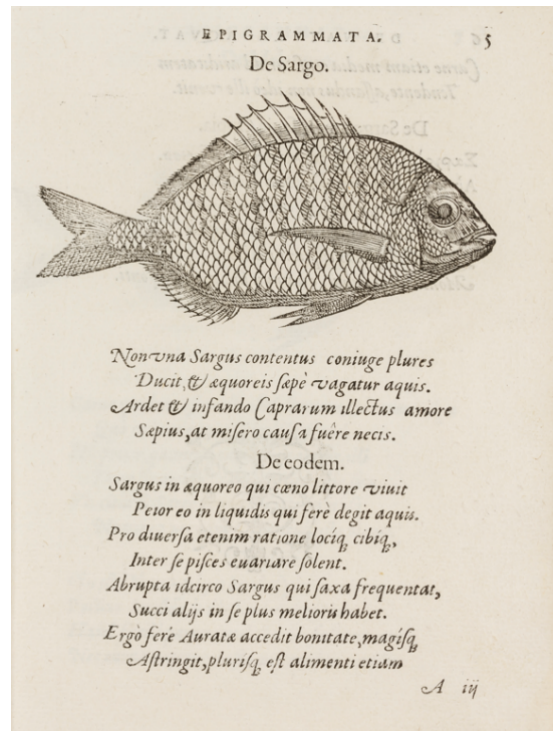 EPIGRAMMATA. 5
De Sargo.
Non vna Sargus contentus coniuge plures
Ducit, & æquoreis sæpè vagatur aquis.
Ardet & infando Caprarum illectus amore
Sæpius, at misero causa fuêre necis.
De eodem.
Sargus in æquoreo qui cœno littore viuit
Peior eo in liquidis qui ferè degit aquis.
Pro diuersa etenim ratione lociq́; cibiq́;,
Inter se pisces euariare solent.
Abrupta idcirco Sargus qui saxa frequentat,
Succi alijs in se plus melioris habet.
Ergò ferè Auratæ accedit bonitate, magisq́;
Astringit, plurisq́; est alimenti etiam
A iij